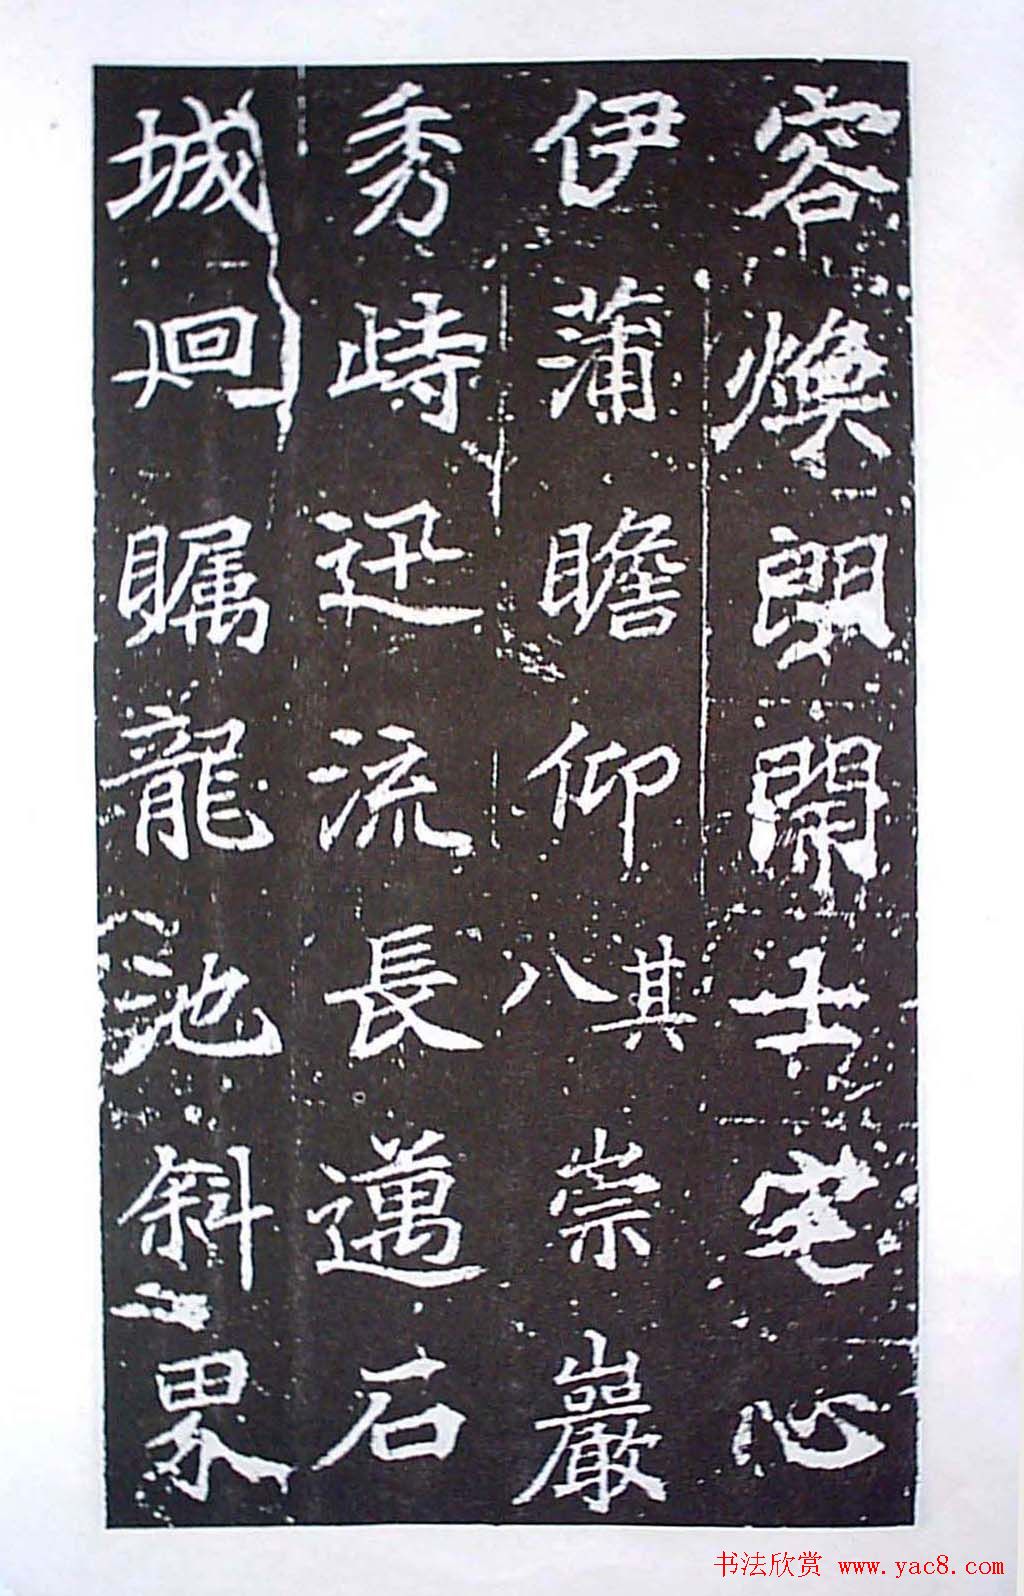 容煥朗開士宅心
伊蒲瞻仰其八崇巖
秀峙迅流長邁石
城迴矚龍池斜界
书法欣赏 www.yac8.com